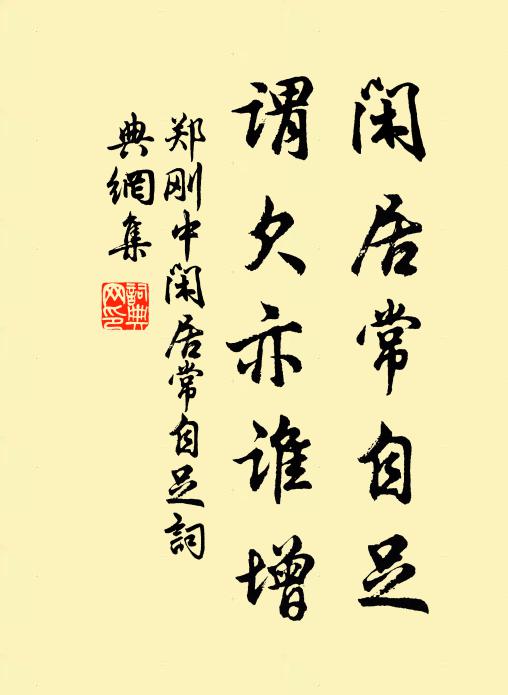 闲居常自足
谓欠亦谁增
郑刚中闲居常自足詞
典網集
詞典
网印